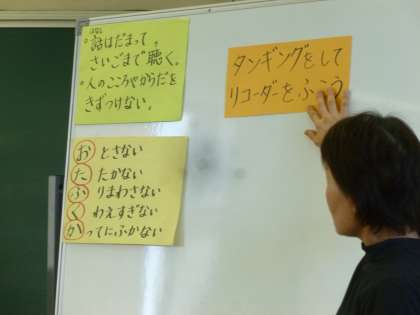 はなし
・話はだまって。
さいごまで聴く。
・人のこころやからだを
きずつけない。
タンギングをして
リコーダーをふこう
おとさない
たたかない
ふりまわさない
くわえすぎない
かってにふかない